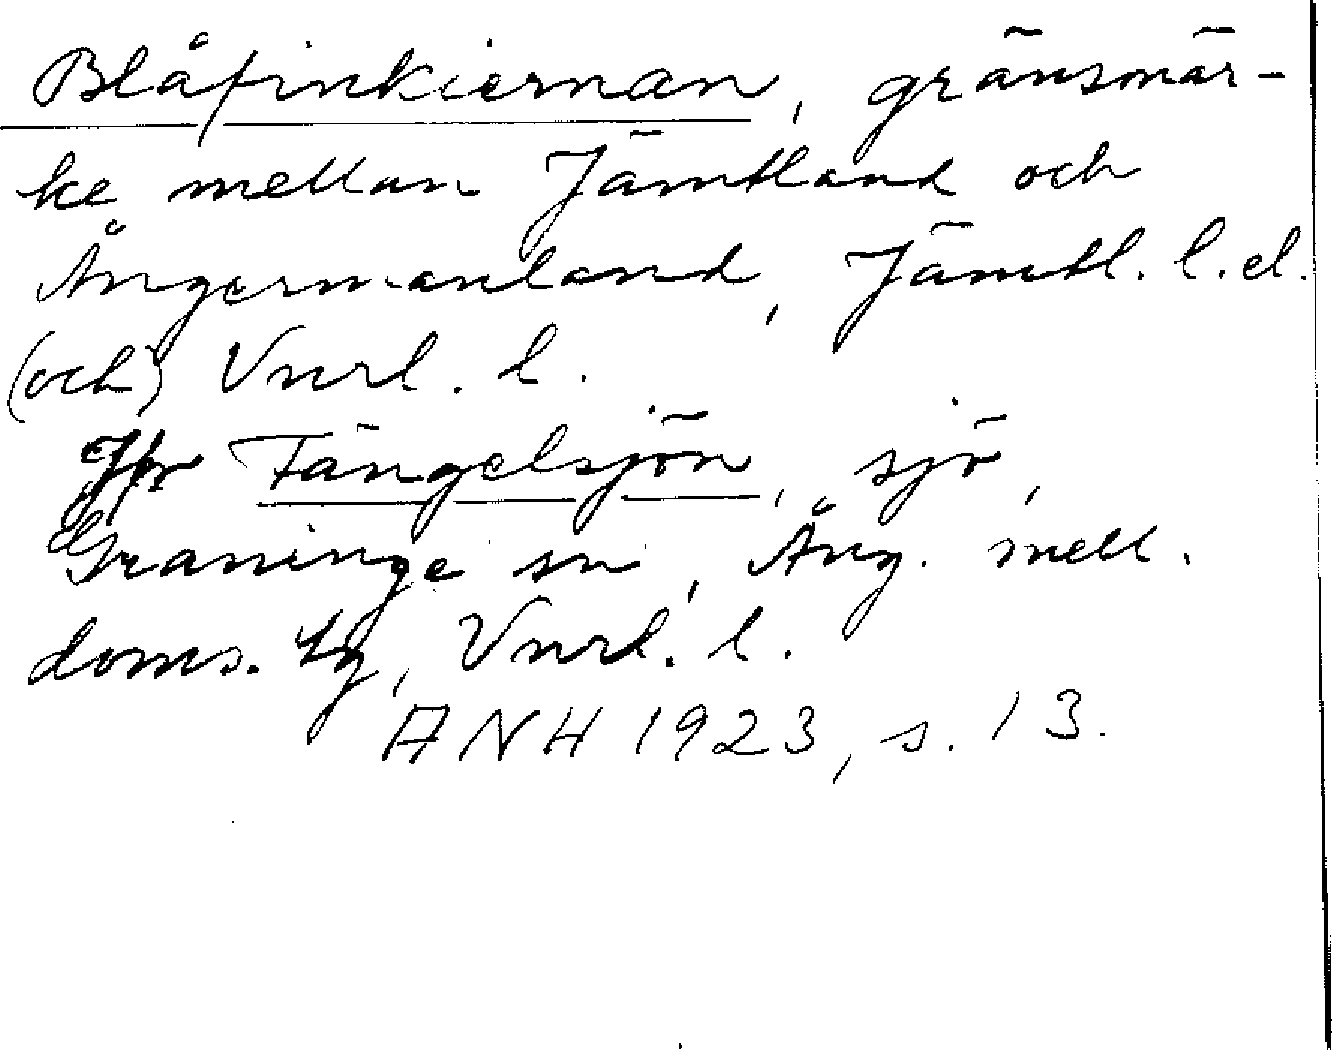 Blåfinkiernan, gränsmär-
ke mellan Jämtland och
Ångermanland, Jämtl. l. el.
(och) Vnrl. l.
Jfr Tängelsjön, sjö,
Graninge sn, Ång. mell.
doms. tg, Vnrl. l.
ANH 1923, s. 13.